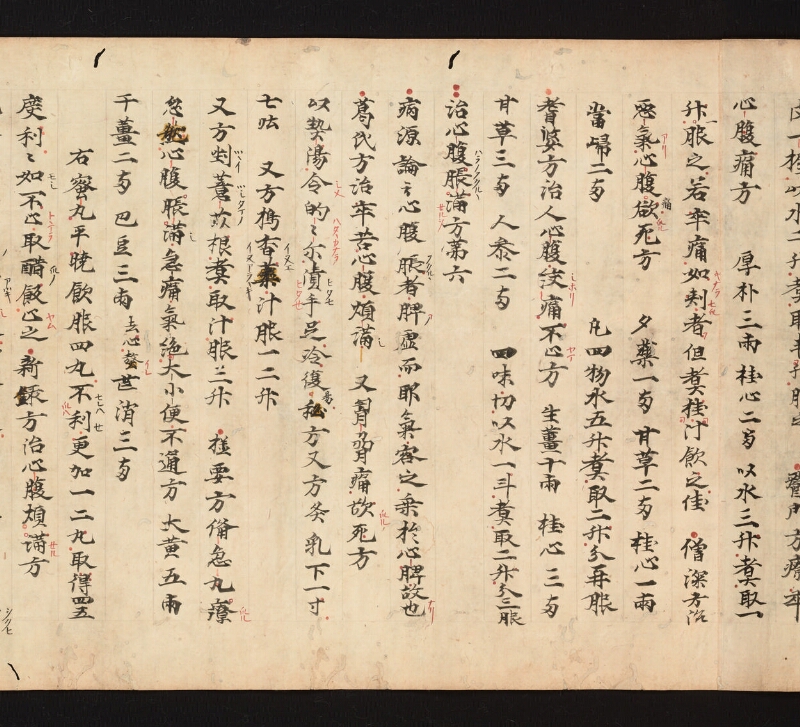 心腹痛方　厚朴三兩　桂心二兩　以水三升煮取一
升服之若卒痛如刺者但煮桂汁飲之佳　僧深方治
惡氣心腹痛欲死方　夕藥一兩　甘草二兩　桂心一兩
當歸二兩　凡四物水五升煮取二升分再服
耆婆方治人心腹絞痛不止方　生薑十兩　桂心三兩
甘草三兩　人參二兩　四味切以水一斗煮取二升分三服
治心腹脹滿方第六
病源論云心腹脹者脾虛而耶氣客之乘於心脾故也
葛氏方治卒苦心腹煩滿　又胷脅痛欲死方
以熱湯令灼々尒漬手足冷復易　私方又方灸乳下一寸
七壯　又方搗香菜汁服一二升
又方剉薏苡根煮取汁服三升　極要方備急丸療
忽然心腹脹滿急痛氣絶大小便不通方　大黃五兩
干薑二兩　巴豆三兩去心熬　芒消三兩
右蜜丸平曉飲服四丸不利更加一二丸取得四五
度利々如不止取醋飯止之　新錄方治心腹煩滿方